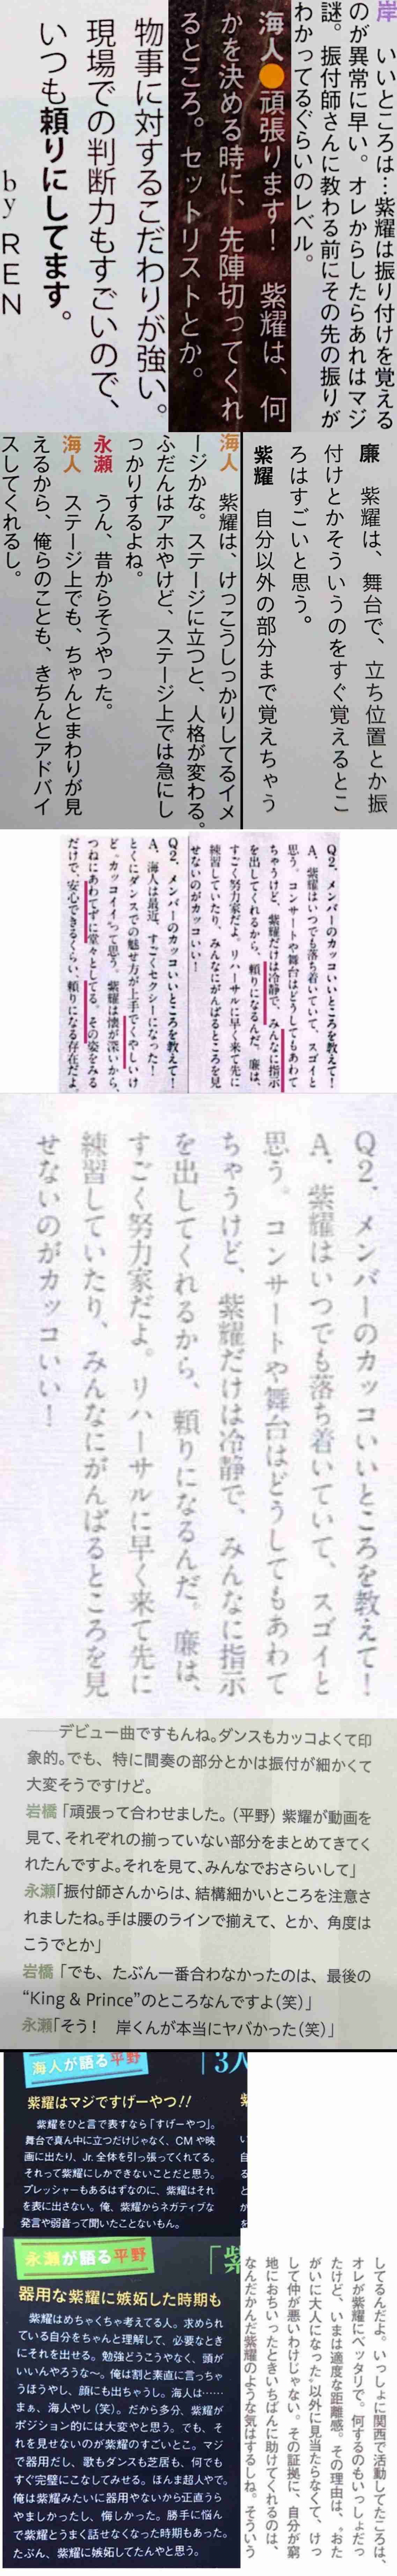 岸　いいところは…紫耀は振り付けを覚える
のが異常に早い。オレからしたらあれはマジ
謎。振付師さんに教わる前にその先の振りが
わかってるぐらいのレベル。
海人●頑張ります！　紫耀は、何
かを決める時に、先陣切ってくれ
るところ。セットリストとか。
物事に対するこだわりが強い。
現場での判断力もすごいので、
いつも頼りにしてます。
by REN
廉　紫耀は、舞台で、立ち位置とか振
付けとかそういうのをすぐ覚えるとこ
ろはすごいと思う。
紫耀　自分以外の部分まで覚えちゃう
海人　紫耀は、けっこうしっかりしてるイメ
ージかな。ステージに立つと、人格が変わる。
ふだんはアホやけど、ステージ上では急にし
っかりするよね。
永瀬　うん、昔からそうやった。
海人　ステージ上でも、ちゃんとまわりが見
えるから、俺らのことも、きちんとアドバイ
スしてくれるし。
Q2. メンバーのカッコいいところを教えて！
A. 紫耀はいつでも落ち着いていて、スゴイと
思う。コンサートや舞台はどうしてもあわて
ちゃうけど、紫耀だけは冷静で、みんなに指示
を出してくれるから、頼りになるんだ。廉は、
すごく努力家だよ。リハーサルに早く来て先に
練習していたり、みんなにがんばるところを見
せないのがカッコいい！
Q2. メンバーのカッコいいところを教えて！
A. 海人は最近、すごくセクシーになった！
とくにダンスでの魅せ方が上手でくやしいけ
ど、カッコイイって思う。紫耀は懐が深いから、
つねにあわてずに堂々としてる。その姿をみる
だけで、安心できるくらい、頼りになる存在だよ
Q2. メンバーのカッコいいところを教えて！
A. 紫耀はいつでも落ち着いていて、スゴイと
思う。コンサートや舞台はどうしてもあわて
ちゃうけど、紫耀だけは冷静で、みんなに指示
を出してくれるから、頼りになるんだ。廉は、
すごく努力家だよ。リハーサルに早く来て先に
練習していたり、みんなにがんばるところを見
せないのがカッコいい！
――デビュー曲ですもんね。ダンスもカッコよくて印
象的。でも、特に間奏の部分とかは振付が細かくて
大変そうですけど。
岩橋「頑張って合わせました。（平野）紫耀が動画を
見て、それぞれの揃っていない部分をまとめてきてく
れたんですよ。それを見て、みんなでおさらいして」
永瀬「振付師さんからは、結構細かいところを注意さ
れましたね。手は腰のラインで揃えて、とか、角度は
こうでとか」
岩橋「でも、たぶん一番合わなかったのは、最後の
“King & Prince”のところなんですよ（笑）」
永瀬「そう！　岸くんが本当にヤバかった（笑）」
海人が語る平野
「3人
紫耀はマジですげーやつ!!
紫耀をひと言で表すなら「すげーやつ」。
舞台で真ん中に立つだけじゃなく、CMや映
画に出たり、Jr.全体を引っ張ってくれてる。
それって紫耀にしかできないことだと思う。
プレッシャーもあるはずなのに、紫耀はそれ
を表に出さない。俺、紫耀からネガティブな
発言や弱音って聞いたことないもん。
永瀬が語る平野
「紫
器用な紫耀に嫉妬した時期も
紫耀はめちゃくちゃ考えてる人。求められ
ている自分をちゃんと理解して、必要なとき
にそれを出せる。勉強どうこうやなく、頭が
いいんやろうな〜。俺は割と素直に言っちゃ
うほうやし、顔にも出ちゃうし。海人は……
まぁ、海人やし（笑）。だから多分、紫耀が
ポジション的には大変やと思う。でも、そ
れを見せないのが紫耀のすごいとこ。マジ
で器用だし、歌もダンスも芝居も、何でも
すぐ完璧にこなしてみせる。ほんま超人やで。
俺は紫耀みたいに器用やないから正直うら
やましかったし、悔しかった。勝手に悩ん
で紫耀とうまく話せなくなった時期もあった。
たぶん、紫耀に嫉妬してたんやと思う。
してるんだよ。いっしょに関西で活動してたころは、
オレが紫耀にベッタリで。何するのもいっしょだっ
たけど、いまは適度な距離感。その理由は、“おた
がいに大人になった”以外に見当たらなくて、けっ
して仲が悪いわけじゃない。その証拠に、自分が窮
地におちいったときいちばんに助けてくれるのは、
なんだかんだ紫耀のような気はするしね。そういう